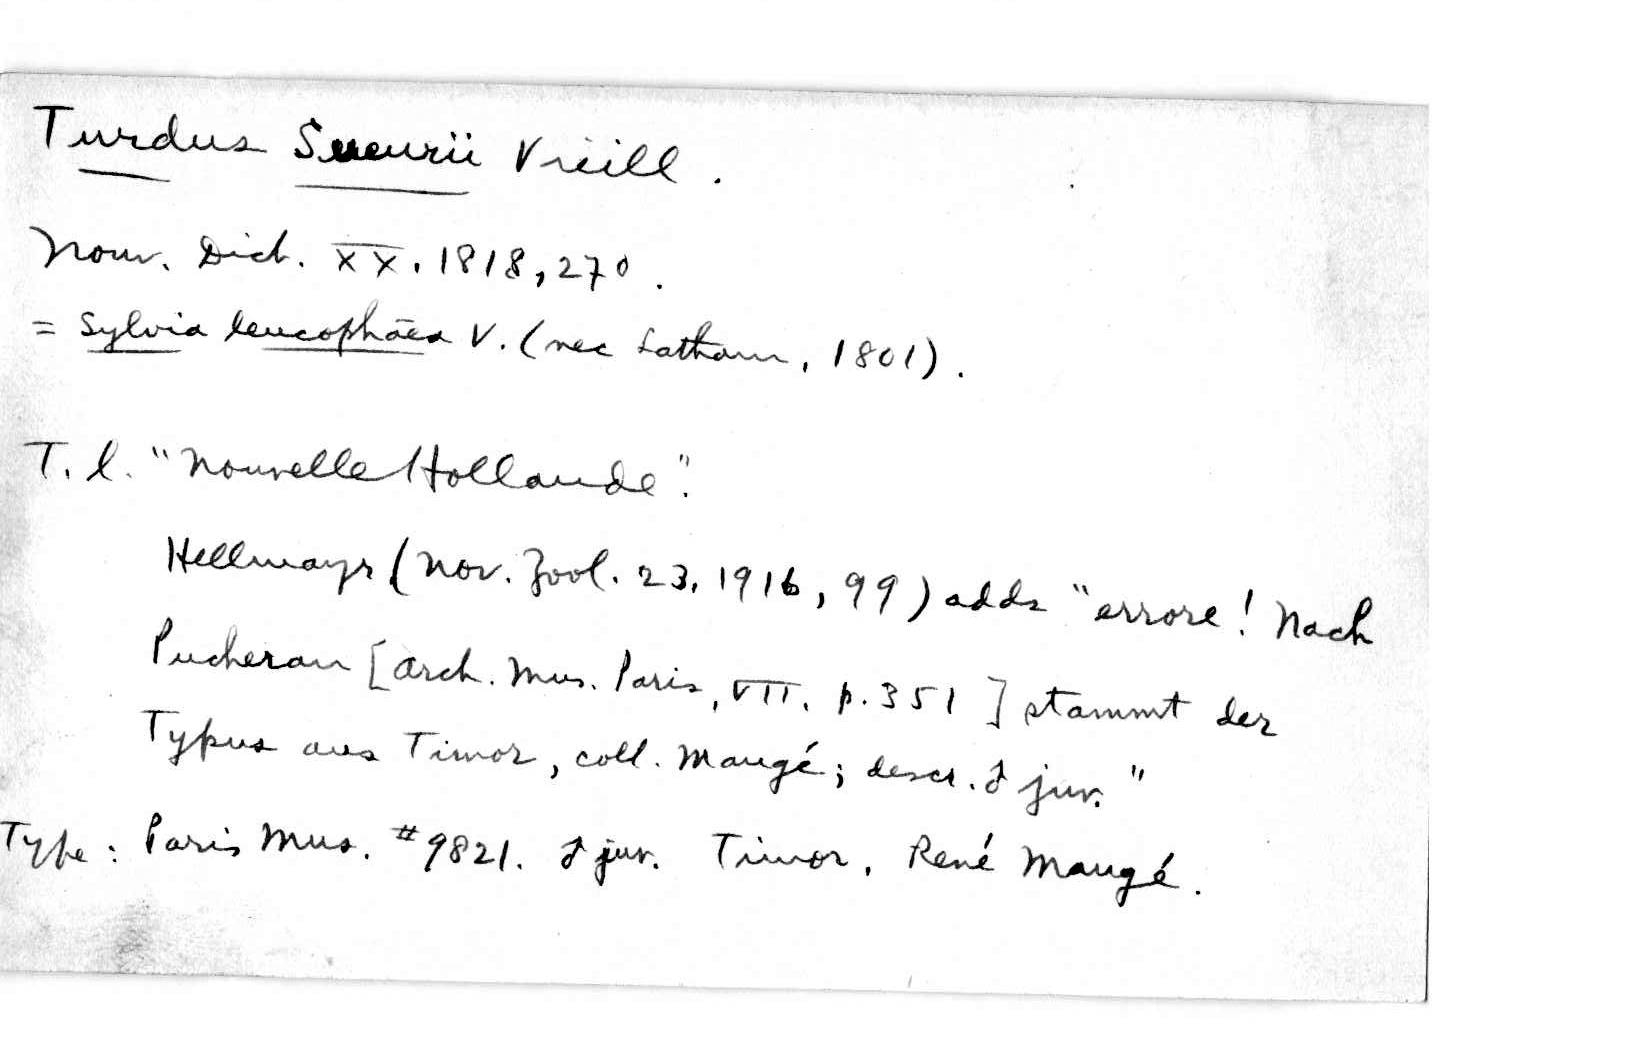 Turdus Sueurii Vieill.
Nouv. Dict. XX. 1818, 270.
= Sylvia leucophäea V. (nec Latham, 1801).
T. l. "Nouvelle Hollande".
Hellmayr (Nov. Zool. 23, 1916, 99) adds "errore! Nach
Pucheran [Arch. Mus. Paris, VII, p. 351] stammt der
Typus aus Timor, coll. Maugé; descr. ♂ juv."
Type: Paris Mus. #9821. ♂ juv. Timor, René Maugé.